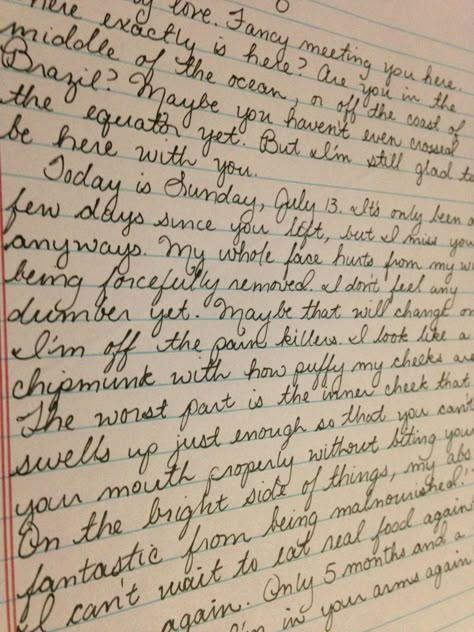 my love. Fancy meeting you here.
here exactly is here? Are you in the
middle of the ocean, or off the coast of
Brazil? Maybe you haven't even crossed
the equator yet. But I'm still glad to
be here with you.
Today is Sunday, July 13. It's only been a
few days since you left, but I miss you
anyways. My whole face hurts from my
being forcefully removed. I don't feel any
dumber yet. Maybe that will change on
I'm off the pain killers. I look like a
chipmunk with how puffy my cheeks are
The worst part is the inner cheek that
swells up just enough so that you can't
your mouth properly without biting your
On the bright side of things, my abs
fantastic from being malnourished!
I can't wait to eat real food again
again. Only 5 months and a
I'm in your arms again